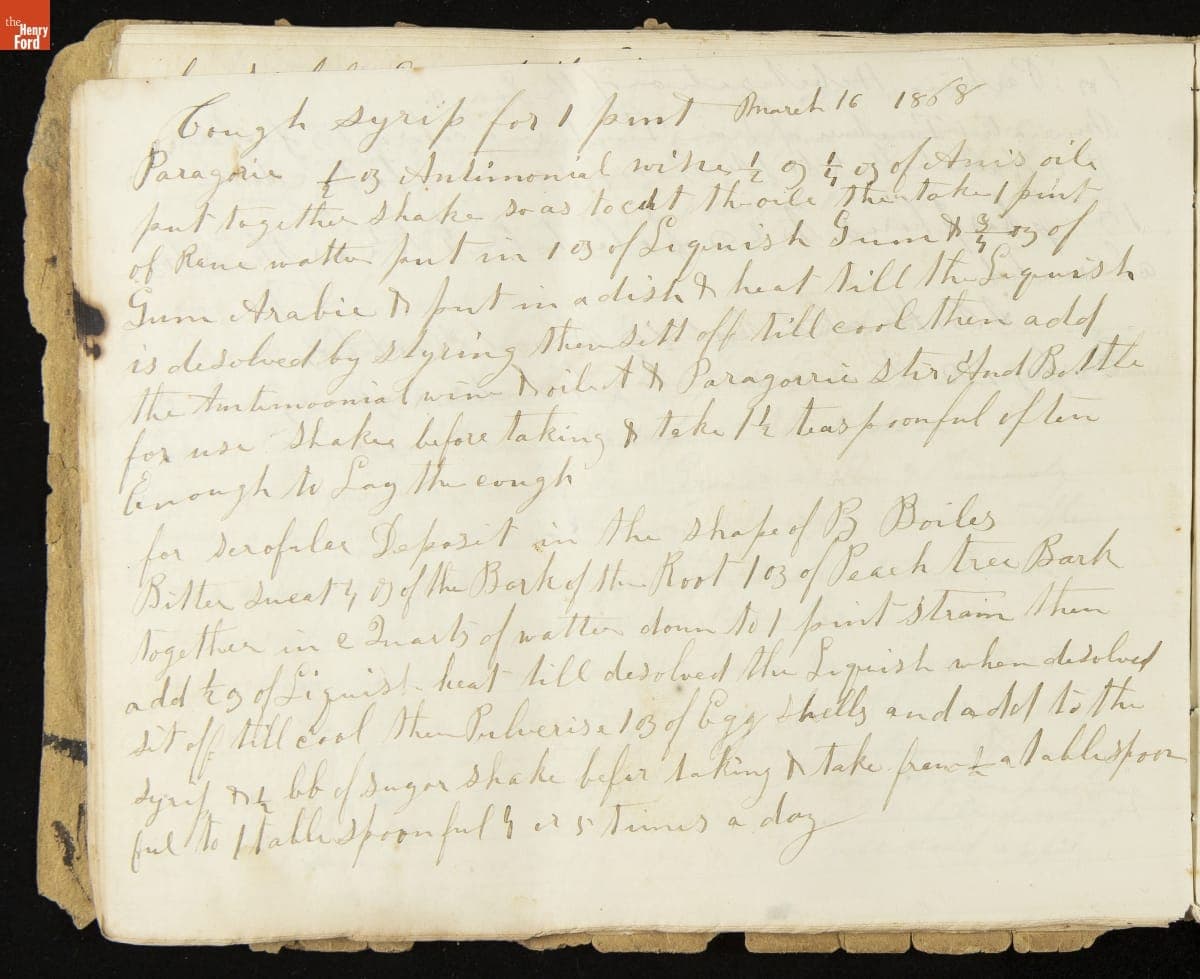 the
Henry
Ford
Cough syrip for 1 pint March 16 1868
Paragorie ½ oz Antimonial wine ½ oz ¼ oz of Anis oile
put together shake so as to cut th oile then take 1 pint
of Rane watter put in 1 oz of Liquish Gum & ¾ oz of
Gum Arabic & put in a dish & heat till the Liquish
is desolved by styring then sitt off till cool then add
the Antimoonial wine & oile & Paragorrie stir And Bottle
for use Shake before taking & take 1½ teaspoonful often
Enough to Lay the cough
for scrofiler Deposit in the shape of B Boiles
Bitter sweat 4 oz of the Bark of the Root 1 oz of Peach tree Bark
together in 2 Quarts of watter down to 1 pint strain then
add ½ oz of Liquish heat till desolved the Liquish when desolved
sit off till cool then Pulverise 1 oz of Egg shells and add to the
syrip & ½ lb of sugar shake befor taking & take from ½ a tablespoon
ful to 1 table spoonful 4 or 5 times a day